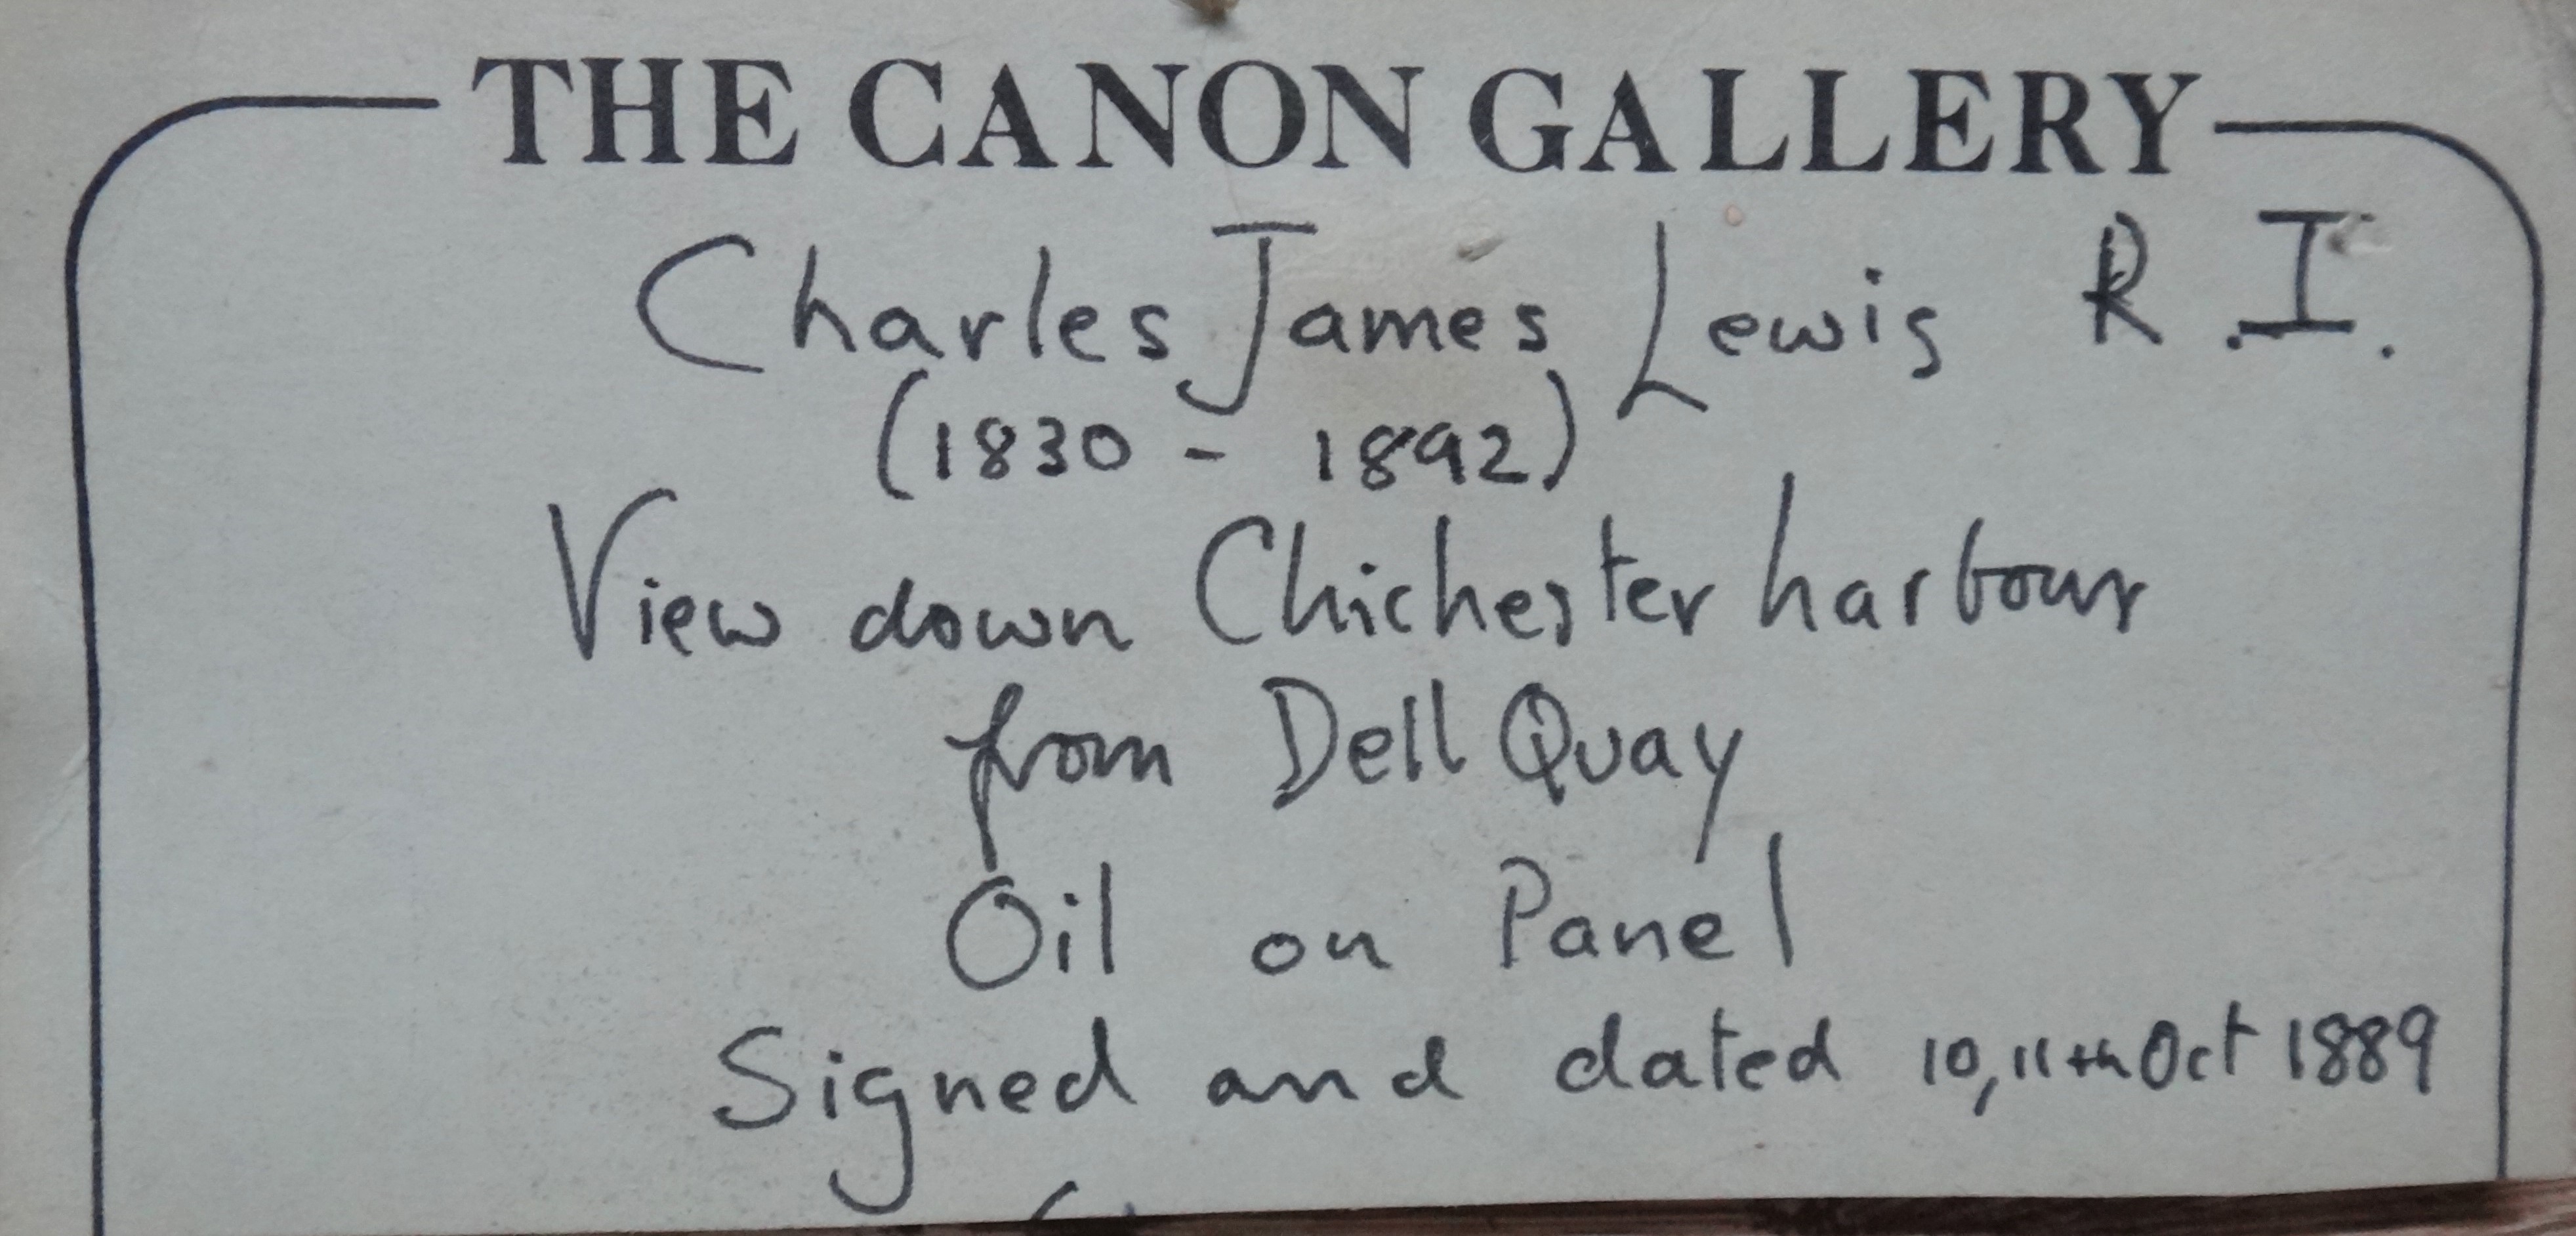 THE CANON GALLERY
Charles James Lewis R.I.
(1830 - 1892)
View down Chichester harbour
from Dell Quay
Oil on Panel
Signed and dated 10,11th Oct 1889